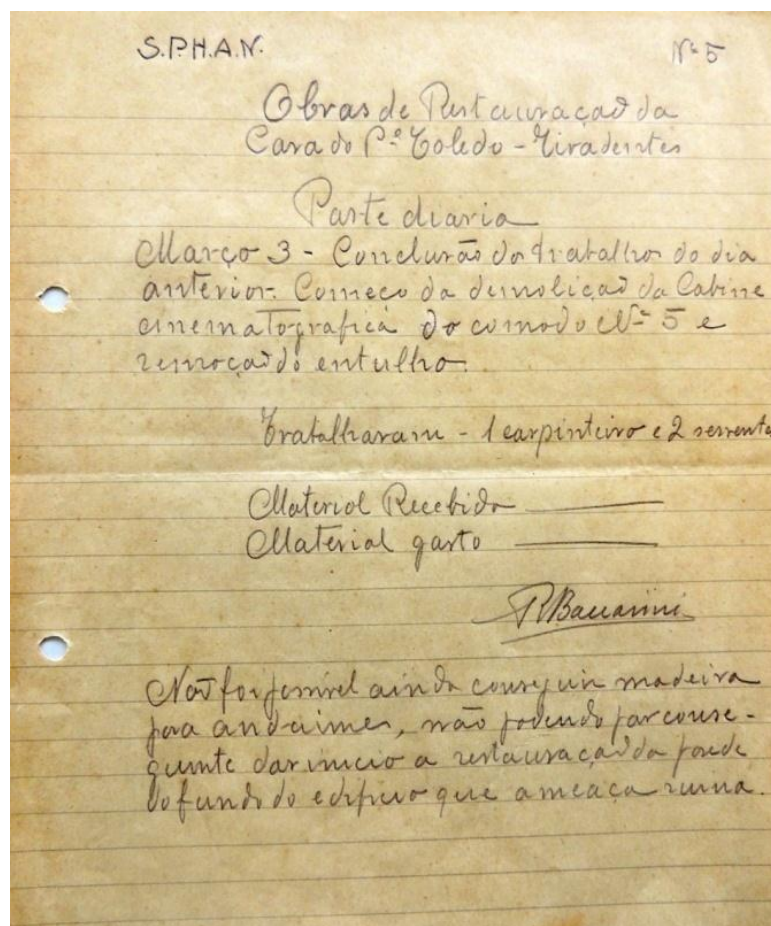 S.P.H.A.N. Nº 5
Obras de Restauração da
Casa do Pº Toledo - Tiradentes
Parte diaria
Março 3 - Conclusão do trabalho do dia
anterior. Começo da demolição da Cabine
cinematografica do comodo Nº 5 e
remoção do entulho.
Trabalharam - 1 carpinteiro e 2 servente
Material Recebido
Material gasto
RBaccarini
Não foi possivel ainda conseguir madeira
para andaimes, não podendo por conse-
guinte dar inicio a restauração da parede
do fundo do edificio que ameaça ruina.